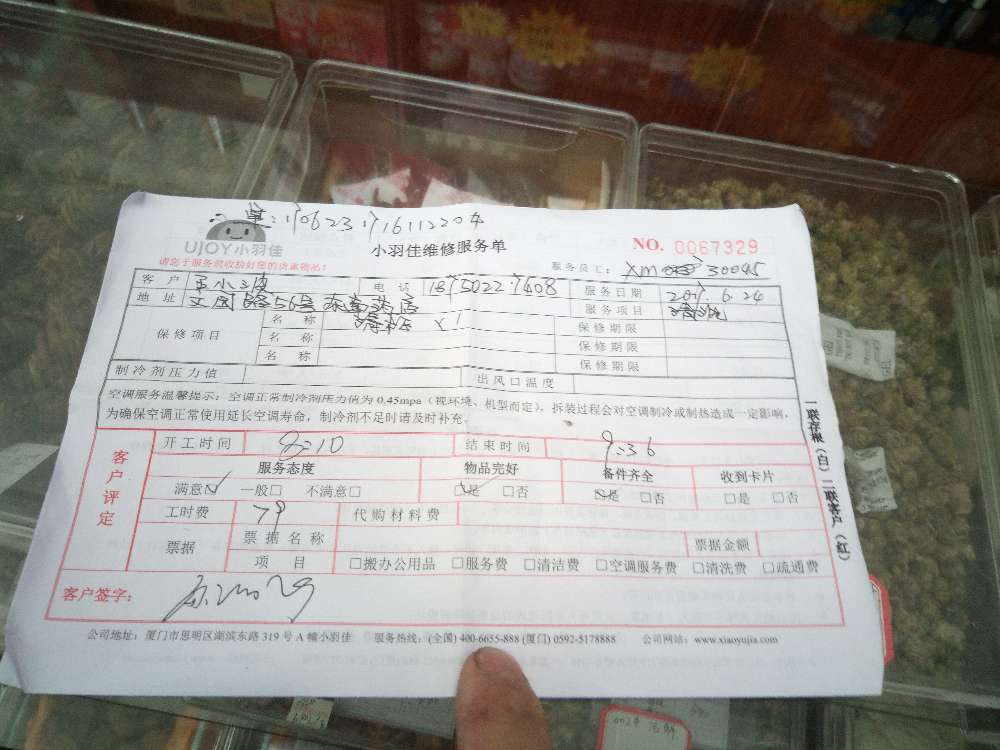 单:1706231716112204
UJOY小羽佳
小羽佳维修服务单
NO. 0067329
请您于服务前收拾好您的贵重物品!
服务员工: XM 30045
客户 王小波 电话 18750227408 服务日期 2017.6.24
地址 文园路56号 药店 服务项目 清洗
保修项目 名称 x1 保修期限
名称 保修期限
名称 保修期限
制冷剂压力值 出风口温度
空调服务温馨提示:空调正常制冷剂压力值为 0.45mpa(视环境、机型而定),拆装过程会对空调制冷或制热造成一定影响,
为确保空调正常使用延长空调寿命,制冷剂不足时请及时补充。
客户评定
开工时间 8:10 结束时间 9:36
服务态度 物品完好 备件齐全 收到卡片
满意☑ 一般□ 不满意□ ☑是 □否 ☑是 □否 □是 □否
工时费 79 代购材料费
票据 票据名称 票据金额
项目 □搬办公用品 □服务费 □清洁费 □空调服务费 □清洗费 □疏通费
客户签字:
公司地址:厦门市思明区湖滨东路 319 号 A 幢小羽佳 服务热线:(全国) 400-6655-888 (厦门) 0592-5178888 公司网站:www.xiaoyujia.com
一联存根(白)二联客户(红)